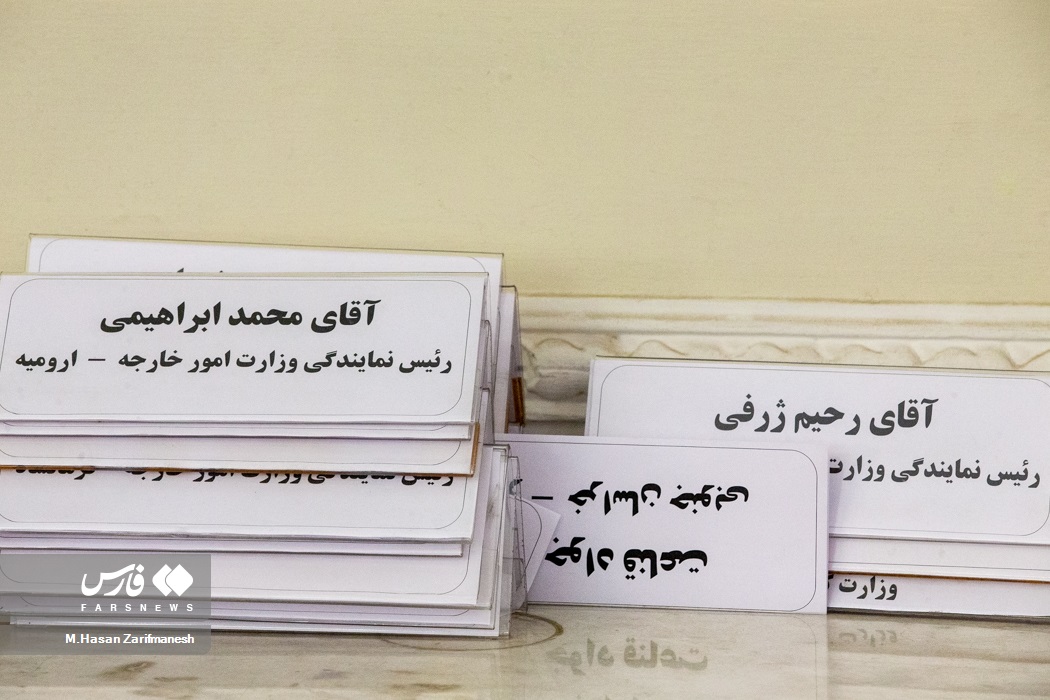 آقای محمد ابراهیمی
رئیس نمایندگی وزارت امور خارجه – ارومیه
رئیس نمایندگی وزارت امور خارجه –
آقای رحیم ژرفی
رئیس نمایندگی وزارت
خراسان جنوبی –
جواد قناعت
وزارت
فارس
FARSNEWS
M.Hasan Zarifmanesh